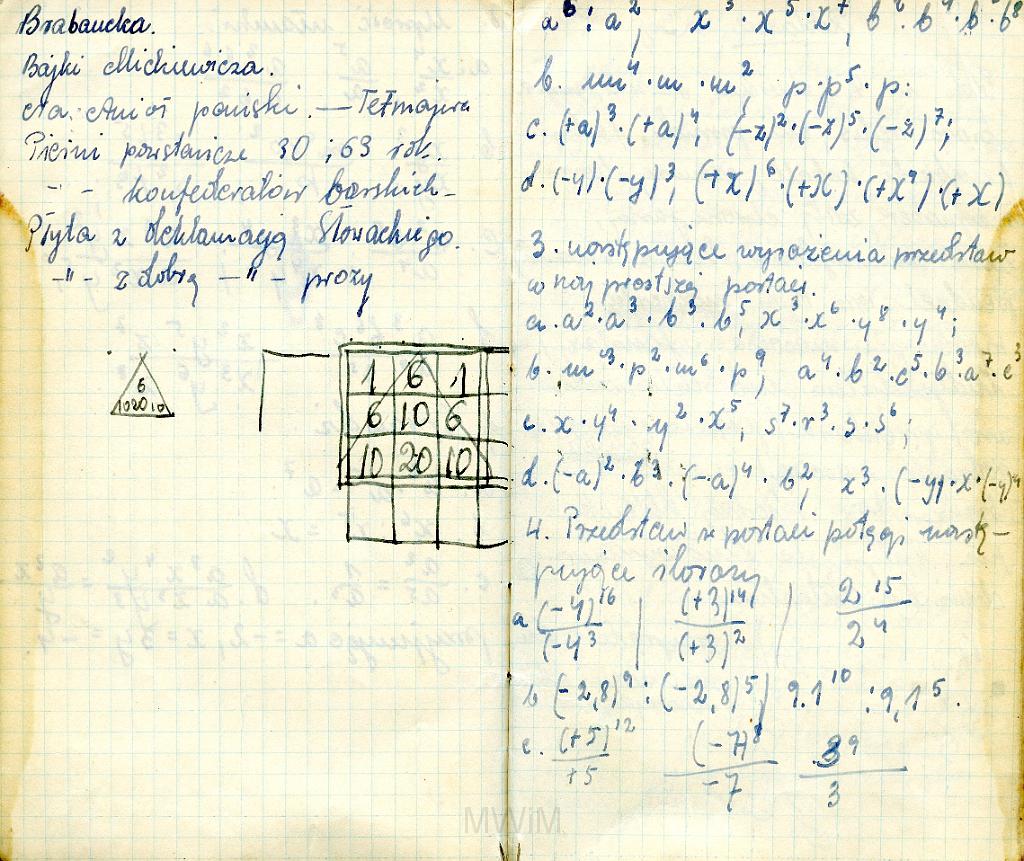 Brabancka.
Bajki Mickiewicza.
Na Anioł pański. — Tetmajera
Pieśni powstańcze 30 i 63 rok.
- " - konfederatów barskich -
Płyta z deklamacją Słowackiego.
- " - z dobrą - " - prozy
6
10 20 10
1 6 1
6 10 6
10 20 10
a⁶ : a², x³ · x⁵ · x⁷,
b. m⁴ · m · m², p · p⁵ · p:
c. (+a)³ · (+a)⁴, (-z)² · (-z)⁵ · (-z)⁷;
d. (-y) · (-y)³, (+x)⁶ · (+x) · (+x⁹) · (+x)
3. następujące wyrażenia przedstaw
w naj prostszej postaci.
a. a² · a³ · b³ · b⁵, x³ · x⁶ · y⁸ · y⁴;
b. m³ · p² · m⁶ · p⁹, a⁴ · b² · c⁵ · b³ · a⁷ · c³
c. x · y⁴ · y² · x⁵, s⁷ · r³ · s · s⁶;
d. (-a)² · b³ · (-a)⁴ · b², x³ · (-y) · x · (-y)⁴
4. Przedstaw w postaci potęgi nastę-
pujące ilorazy
a (-4)¹⁶ / (-4³ | (+3)¹⁴ / (+3)² | 2¹⁵ / 2⁴
b (-2,8)⁹ : (-2,8)⁵ | 9.1¹⁰ : 9,1⁵.
c. (+5)¹² / +5 (-7)⁸ / -7 3⁹ / 3
MWiM